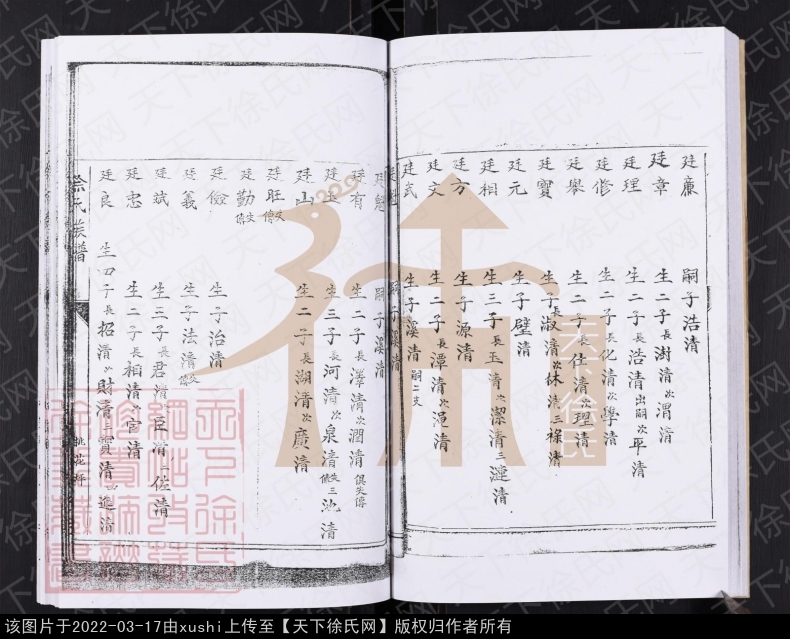 廷廉 嗣子浩清
廷章 生二子長澍清次渭清
廷理 生二子長浩清出嗣次平清
廷修 生二子長化清次學清
廷舉 生二子長仕清次理清
廷寶 生子長淑清次休清三祿清
廷元 生子璧清
廷相 生三子長玉清次潔清三漣清
廷方 生子源清
廷文 生二子長潭清次渑清
廷武 生子溪清嗣二支
廷魁 嗣子溪清
廷魁 嗣子溪清
廷有 生二子長澤清次潤清俱失傳
生三子長河清次泉清失傳三池清
廷山 生二子長湖清次廣清
廷旺 失傳
廷勤 失傳
廷儉 生子治清
廷義 生子法清失傳
廷斌 生三子長君清次臣清三佐清
廷忠 生二子長相清次官清
廷良 生四子長招清次財清三寶清四進清
徐氏族譜
桃花坪
徐
天下徐氏
天下徐氏网
该图片于2022-03-17由xushi上传至【天下徐氏网】版权归作者所有